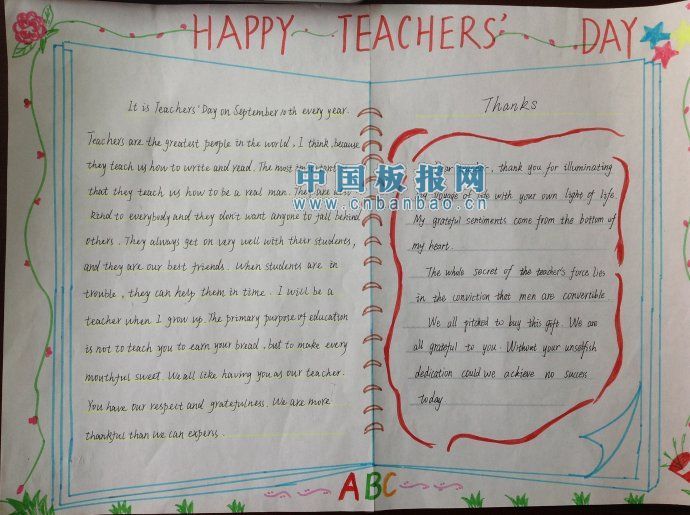 HAPPY TEACHERS' DAY
It is Teachers' Day on September 10th every year.
Teachers are the greatest people in the world, I think, because
they teach us how to write and read. The most important
that they teach us how to be a real man. They are
kind to everybody and they don't want anyone to fall behind
others. They always get on very well with their students,
and they are our best friends. When students are in
trouble, they can help them in time. I will be a
teacher when I grow up. The primary purpose of education
is not to teach you to earn your bread, but to make every
mouthful sweet. We all like having you as our teacher.
You have our respect and gratefulness. We are more
thankful than we can experss.
Thanks
Dear teacher, thank you for illuminating
my voyage of life with your own light of life.
My grateful sentiments come from the bottom of
my heart.
The whole secret of the teacher's force lies
in the conviction that men are convertible
We all pitched to buy this gift. We are
all grateful to you. Without your unselfish
dedication could we achieve no success
today.
中国板报网
www.cnbanbao.cn
ABC